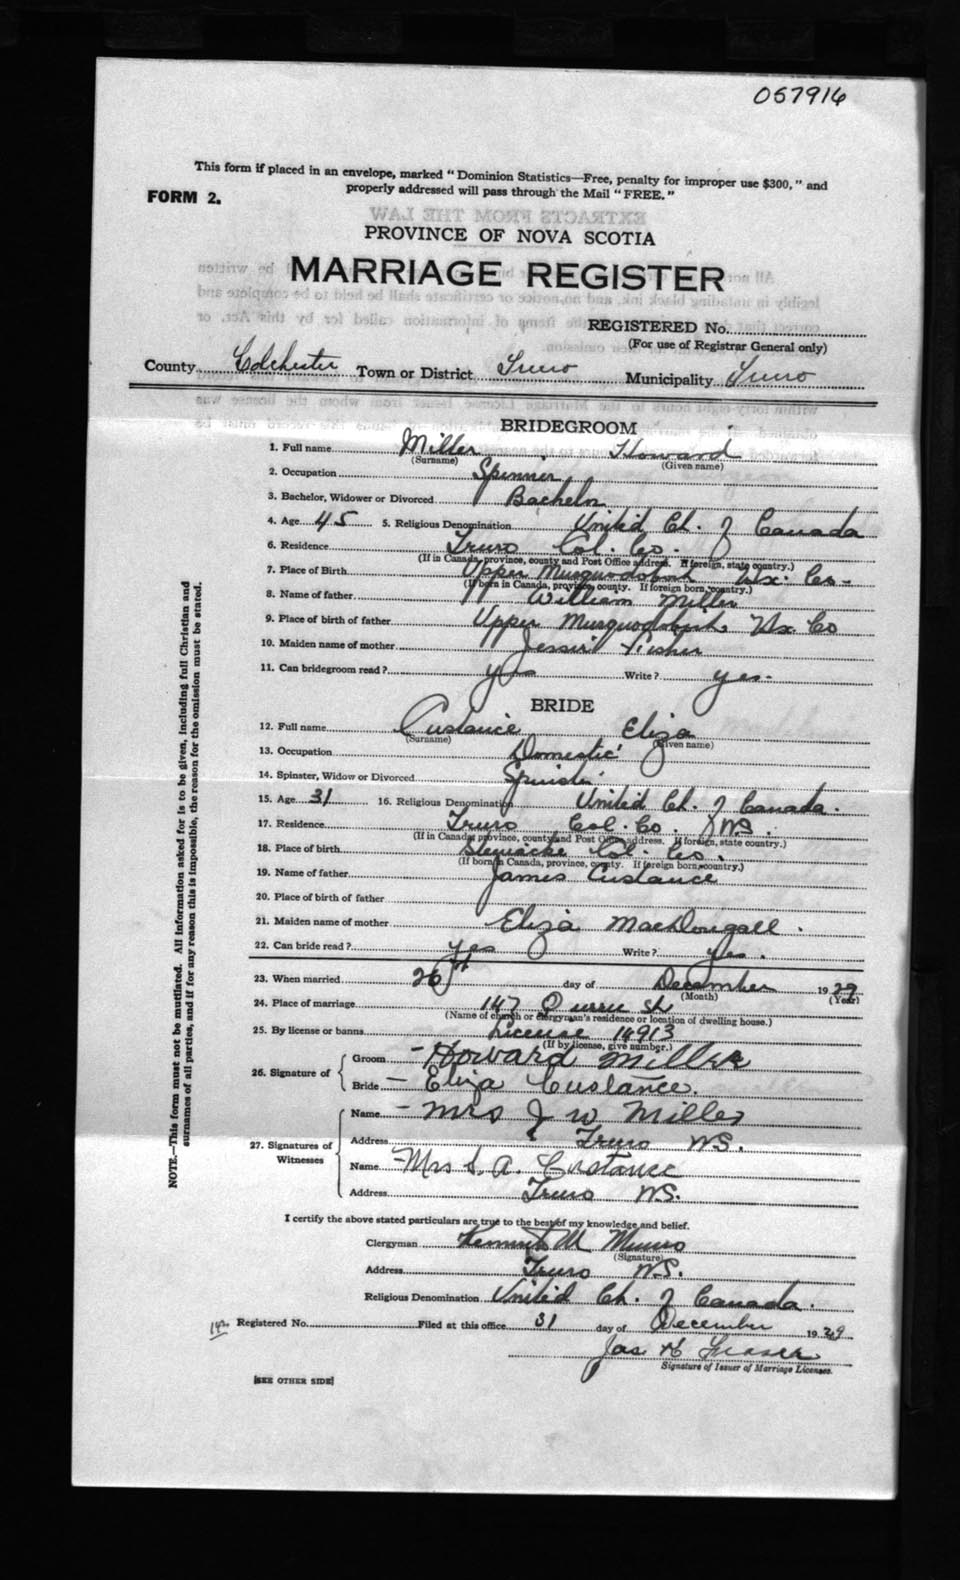 057916
This form if placed in an envelope, marked "Dominion Statistics—Free, penalty for improper use $300," and
FORM 2.
properly addressed will pass through the Mail "FREE."
EXTRACTS FROM THE LAW
PROVINCE OF NOVA SCOTIA
MARRIAGE REGISTER
REGISTERED No.
(For use of Registrar General only)
County Colchester Town or District Truro Municipality Truro
BRIDEGROOM
1. Full name Miller Howard
(Surname) (Given name)
2. Occupation Spinner
3. Bachelor, Widower or Divorced Bachelor
4. Age 45 5. Religious Denomination United Ch. of Canada
6. Residence Truro Col. Co.
(If in Canada, province, county and Post Office address. If foreign, state country.)
7. Place of Birth Upper Musquodoboit Hx. Co.
(If born in Canada, province, county. If foreign born, country.)
8. Name of father William Miller
9. Place of birth of father Upper Musquodoboit Hx. Co
10. Maiden name of mother Jessie Fisher
11. Can bridegroom read? yes Write? yes.
BRIDE
12. Full name Custance Eliza
(Surname) (Given name)
13. Occupation Domestic
14. Spinster, Widow or Divorced Spinster
15. Age 31 16. Religious Denomination United Ch. of Canada.
17. Residence Truro Col. Co. NS.
(If in Canada, province, county and Post Office address. If foreign, state country.)
18. Place of birth Stewiacke Col. Co.
(If born in Canada, province, county. If foreign born, country.)
19. Name of father James Custance
20. Place of birth of father
21. Maiden name of mother Eliza MacDougall.
22. Can bride read? yes Write? yes.
23. When married 26th day of December 1929
(Month) (Year)
24. Place of marriage 147 Queen St.
(Name of church or clergyman's residence or location of dwelling house.)
25. By license or banns License 14913
(If by license, give number.)
26. Signature of Groom - Howard Miller
Bride - Eliza Custance.
27. Signatures of Witnesses Name - Mrs J W Miller
Address Truro NS.
Name - Mrs S. A. Custance
Address Truro NS.
I certify the above stated particulars are true to the best of my knowledge and belief.
Clergyman Kenneth M Munro
(Signature)
Address Truro NS.
Religious Denomination United Ch. of Canada.
Registered No. Filed at this office 31 day of December 1929
Jas H Fraser
Signature of Issuer of Marriage Licenses.
[SEE OTHER SIDE]
NOTE.—This form must not be mutilated. All information asked for is to be given, including full Christian and
surnames of all parties, and if for any reason this is impossible, the reason for the omission must be stated.